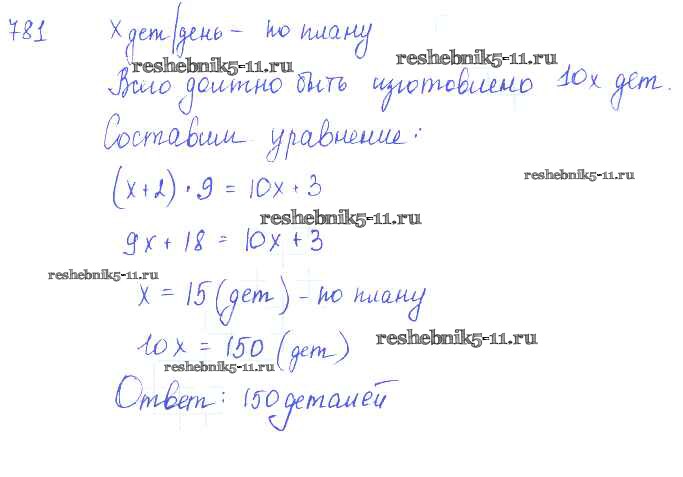 781 x дет/день - по плану
reshebnik5-11.ru reshebnik5-11.ru
Всего должно быть изготовлено 10x дет.
Составим уравнение:
reshebnik5-11.ru
(x+2) · 9 = 10x + 3
reshebnik5-11.ru
9x + 18 = 10x + 3
reshebnik5-11.ru
x = 15 (дет) - по плану
reshebnik5-11.ru
10x = 150 (дет)
reshebnik5-11.ru
Ответ: 150 деталей